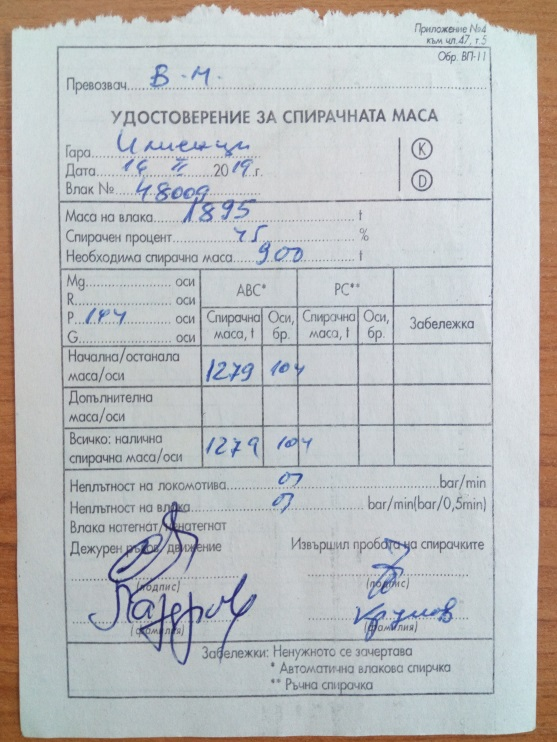 Приложение №4
към чл.47, т.5
Обр. ВП-11
Превозвач.... В.М.
УДОСТОВЕРЕНИЕ ЗА СПИРАЧНАТА МАСА
Гара.... Илиенци
К
Дата.... 14 II 2019.г.
D
Влак №.... 48009
Маса на влака.... 1895 t
Спирачен процент.... 45 %
Необходима спирачна маса.... 900 t
Mg.... оси
R.... оси
P.... 144 оси
G.... оси
АВС* РС**
Спирачна маса, t Оси, бр. Спирачна маса, t Оси, бр. Забележка
Начална/остонала маса/оси 1279 104
Допълнителна маса/оси
Всичко: налична спирачна маса/оси 1279 104
Неплътност на локомотива.... bar/min
Неплътност на влака.... bar/min(bar/0,5min)
Влака нотегнат/ненатегнат
Дежурен ръков. движение Извършил пробата на спирачките
(подпис) (подпис)
Лазаров Крумов
(фамилия) (фамилия)
Забележки: Ненужното се зачертава
* Автоматична влакова спирчка
** Ръчна спирачка